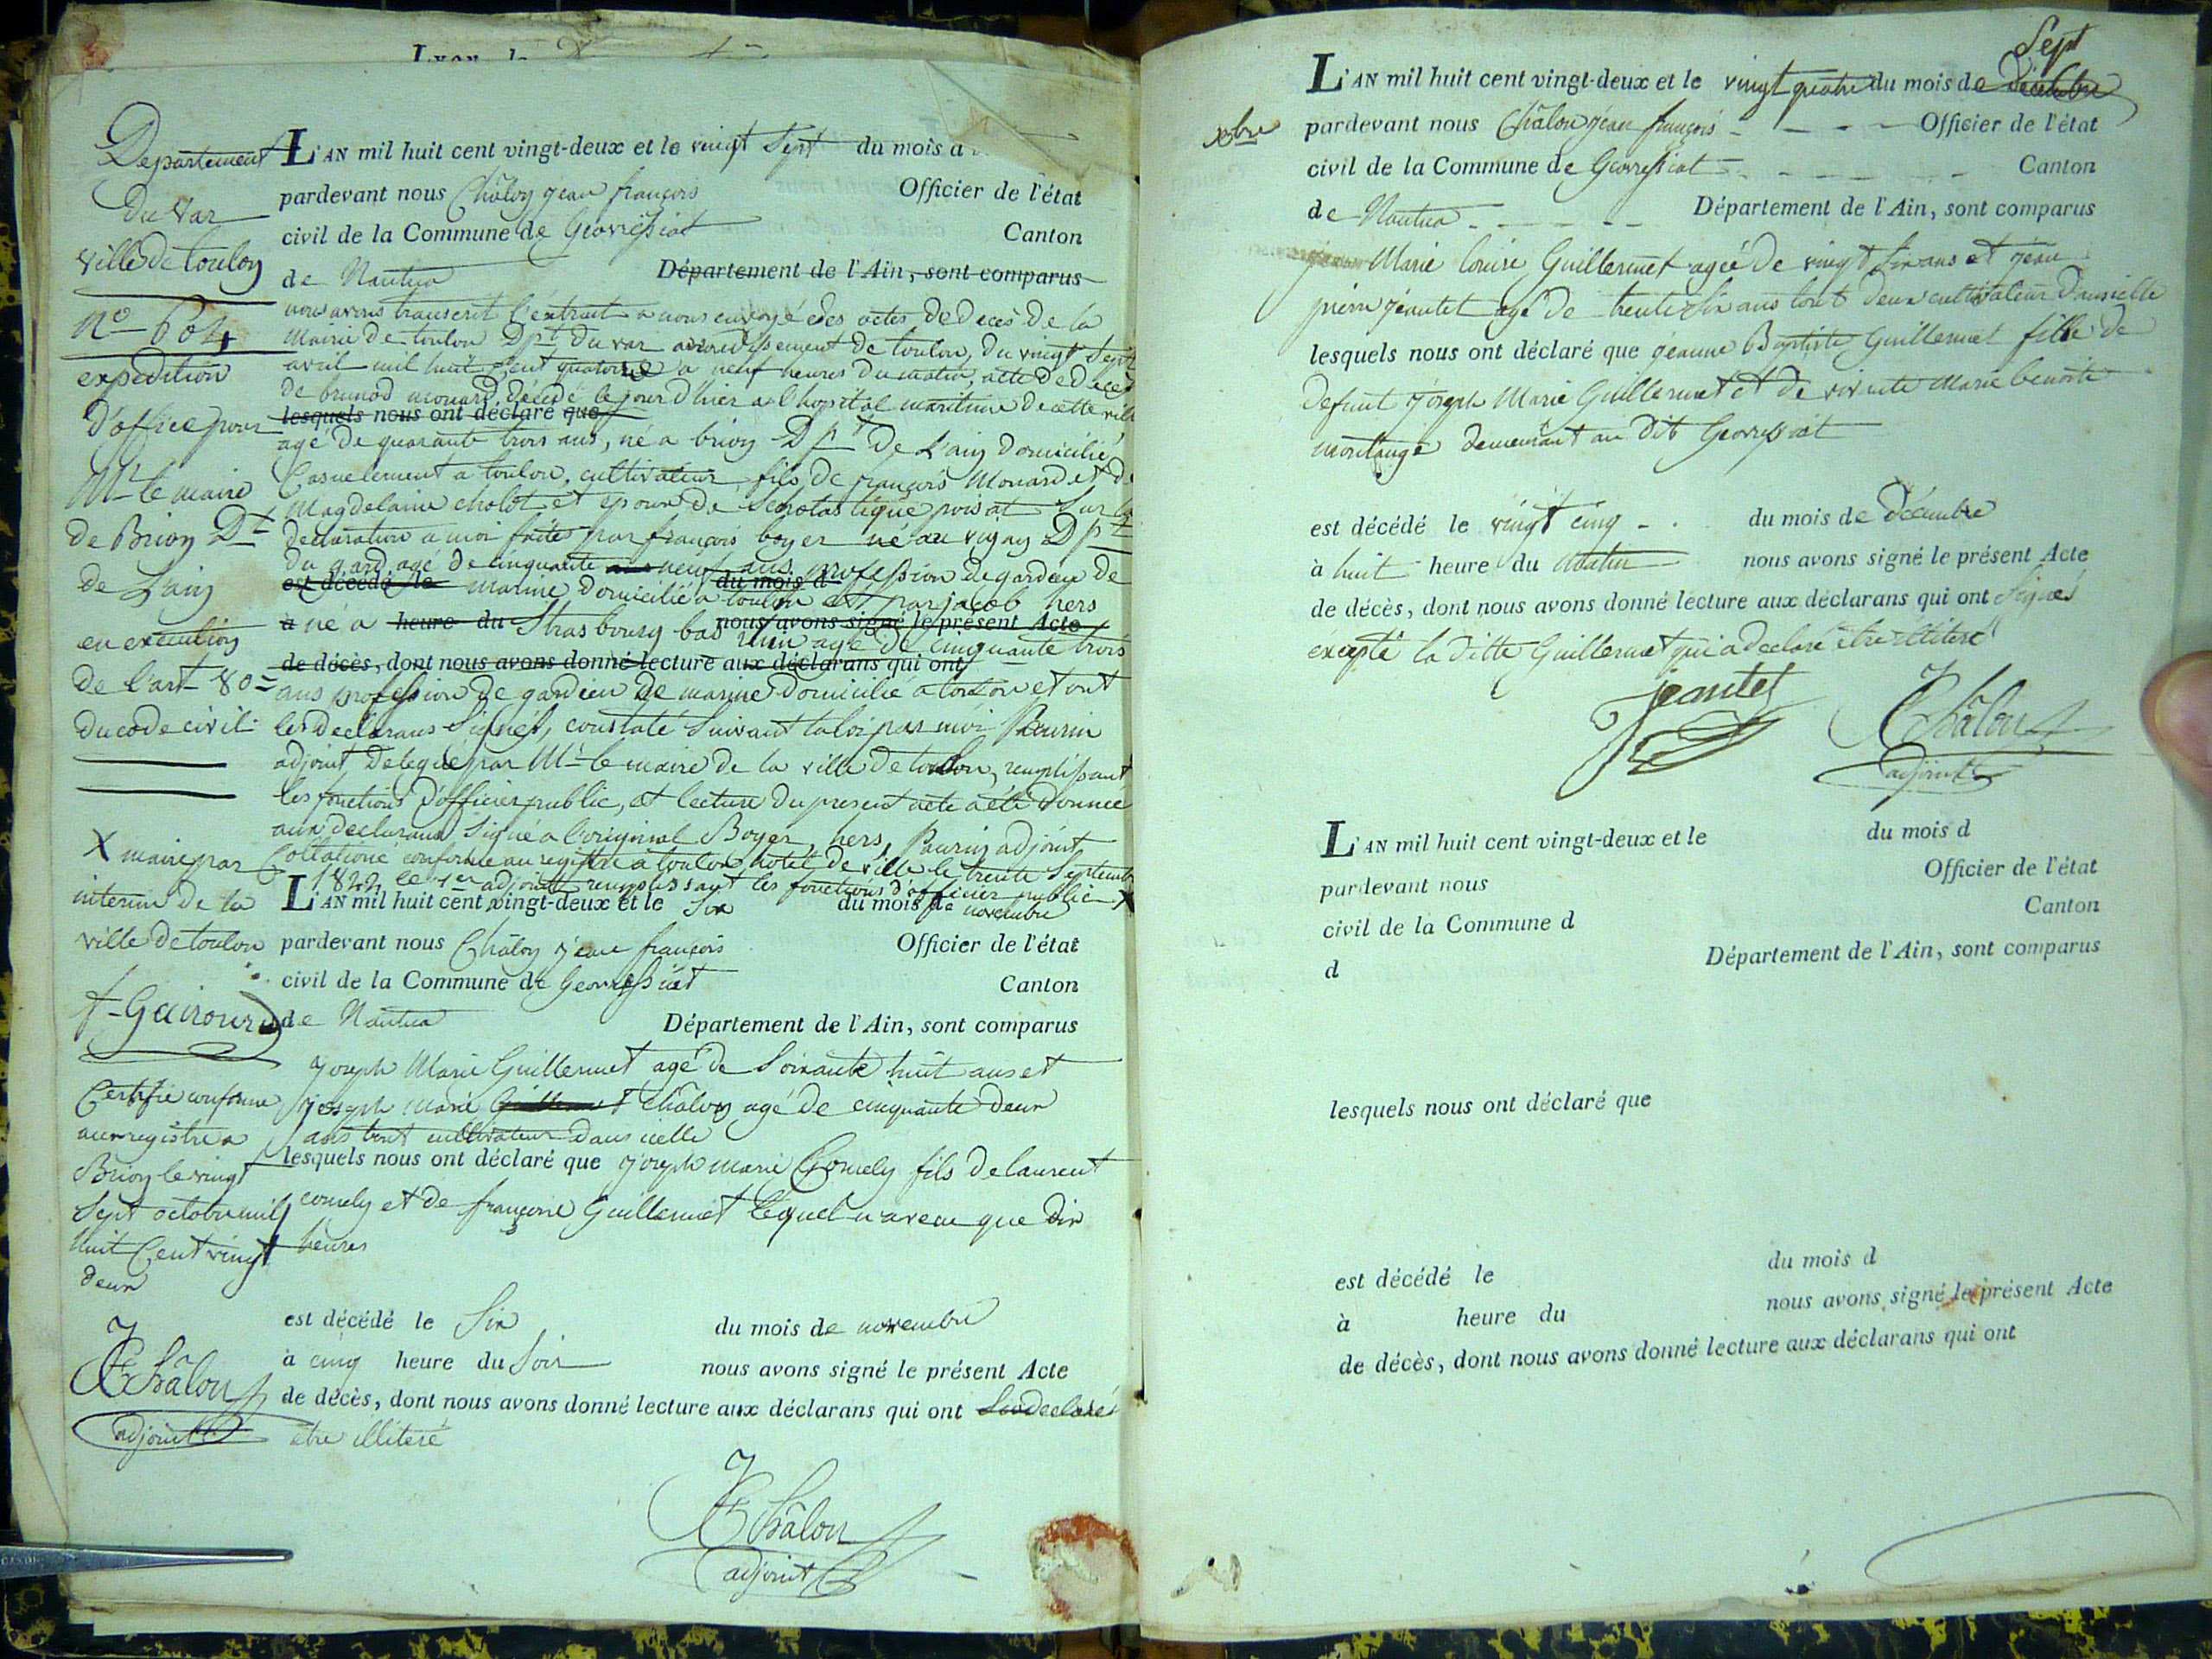 Departement
du Var
ville de toulon
n° 604
expedition
d'office pour
Mr le maire
de Brion Dt
de L'ain
en execution
de l'art 80=
du code civil
X maire par
interim de la
ville de toulon
f-Gairoard
Certifié conforme
aux registre a
Brion le vingt
Sept octobre mil
huit Cent vingt
deux
Châlon
adjoint
L'AN mil huit cent vingt-deux et le vingt Sept du mois d
pardevant nous Châlon jean françois Officier de l'état
civil de la Commune de Geovressiat Canton
de Nantua Département de l'Ain, sont comparus
nous avons transcrit l'extrait a nous envoyé des actes de deces de la
Mairie de toulon Dpt du var arrondissement de toulon, du vingt Sept
avril mil huit Cent quatorze a neuf heures du matin, acte de deces
de brunod monard, décédé le jour d'hier a l'hopital maritime de cette ville
lesquels nous ont déclaré que
agé de quarante trois ans, né a brion Dpt De L'ain domicilié
Casuelement a toulon, cultivateur, fils de françois Monard et de
Magdelaine cholot et epoux de Scholastique poisat Sur la
declaration a moi faite par françois boyer né au vigan Dpt
du gard agé de cinquante neuf ans profession de gardien de
est décédé le marine domicilié a toulon du mois d et par jacob hers
à né a heure du Strasbourg bas Rhin nous avons signé le présent Acte agé de cinquante trois
de décès, dont nous avons donné lecture aux déclarans qui ont
ans profession de gardien de marine domicilié a toulon et ont
les declarans Signés, constaté Suivant la loi par moi Paurin
adjoint delegué par Mr le maire de la ville de toulon, remplissant
les fonctions d'officier public, et lecture du present acte a été donnée
aux declarans Signé a l'original Boyer, hers, Paurin adjoint
Collationé conforme au registre a toulon hotel de ville le trente Septembre
1822 le 1er adjoint remplissant les fonctions d'officier public X
L'AN mil huit cent vingt-deux et le Six du mois de novembre
pardevant nous Châlon jean françois Officier de l'état
civil de la Commune de Geovressiat Canton
de Nantua Département de l'Ain, sont comparus
joseph Marie Guillermet agé de Soixante huit ans et
joseph marie Guillermet Châlon agé de cinquante deux
ans tout cultivateur dans icelle
lesquels nous ont déclaré que joseph marie Comely fils de laurent
comely et de françoise Guillermet lequel n'a vecu que dix
heures
est décédé le Six du mois de novembre
à cinq heure du Soir nous avons signé le présent Acte
de décès, dont nous avons donné lecture aux déclarans qui ont declaré
être illiteré
Châlon
adjoint
Sept
L'AN mil huit cent vingt-deux et le vingt quatre du mois de décembre
xbre
pardevant nous Châlon jean françois Officier de l'état
civil de la Commune de Geovressiat Canton
de Nantua Département de l'Ain, sont comparus
Marie louise Guillermet agée de vingt Six ans et jean
pierre jeantet agé de trente Six ans tout deux cultivateur d'ansielle
lesquels nous ont déclaré que jeanne Baptiste Guillermet fille de
defunt joseph Marie Guillermet et de vivente Marie benoite
montange demeurant au dit Geovressiat
est décédé le vingt cinq du mois de décembre
à huit heure du Matin nous avons signé le présent Acte
de décès, dont nous avons donné lecture aux déclarans qui ont Signés
excepté la ditte Guillermet qui a declaré être illiteré
jeantet
Châlon
adjoint
L'AN mil huit cent vingt-deux et le du mois d
pardevant nous Officier de l'état
civil de la Commune d Canton
d Département de l'Ain, sont comparus
lesquels nous ont déclaré que
est décédé le du mois d
à heure du nous avons signé le présent Acte
de décès, dont nous avons donné lecture aux déclarans qui ont